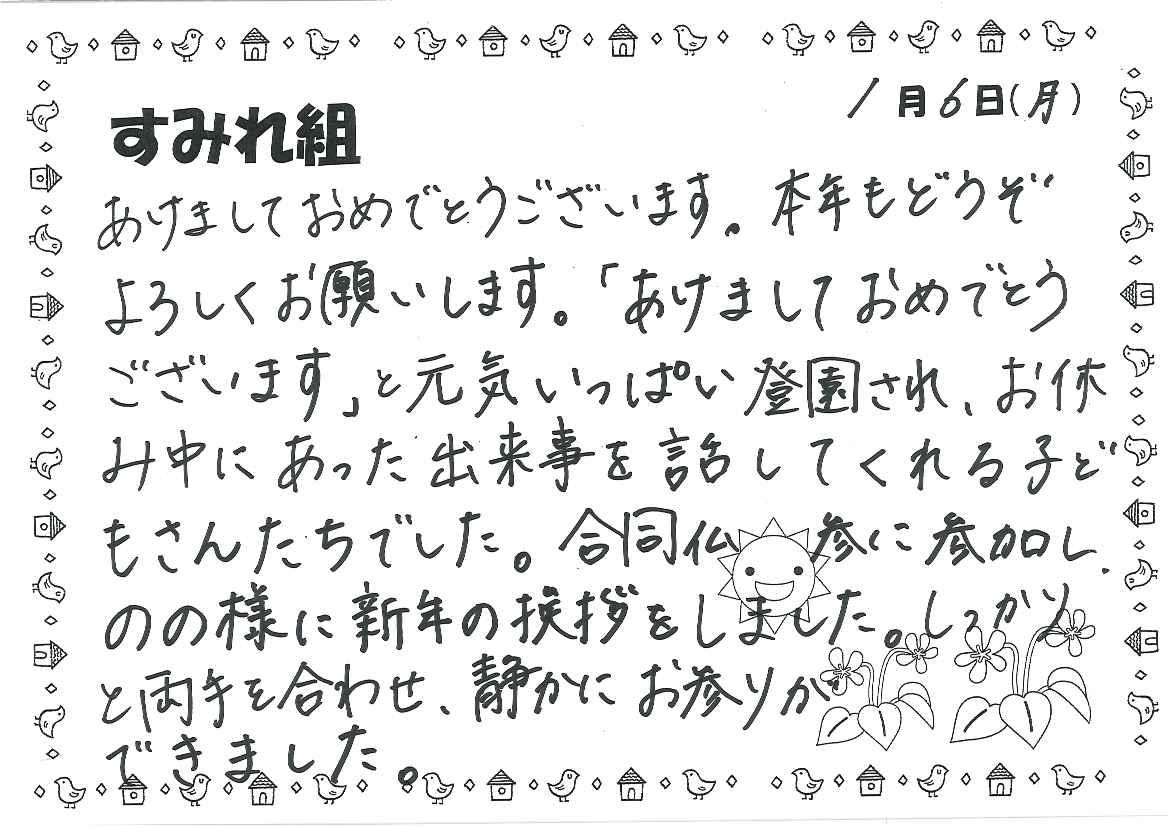 1月6日(月)
すみれ組
あけましておめでとうございます。本年もどうぞ
よろしくお願いします。「あけましておめでとう
ございます」と元気いっぱい登園され、お休
み中にあった出来事を話してくれる子ど
もさんたちでした。合同仏参に参加し、
のの様に新年の挨拶をしました。しっかり
と両手を合わせ、静かにお参りが
できました。